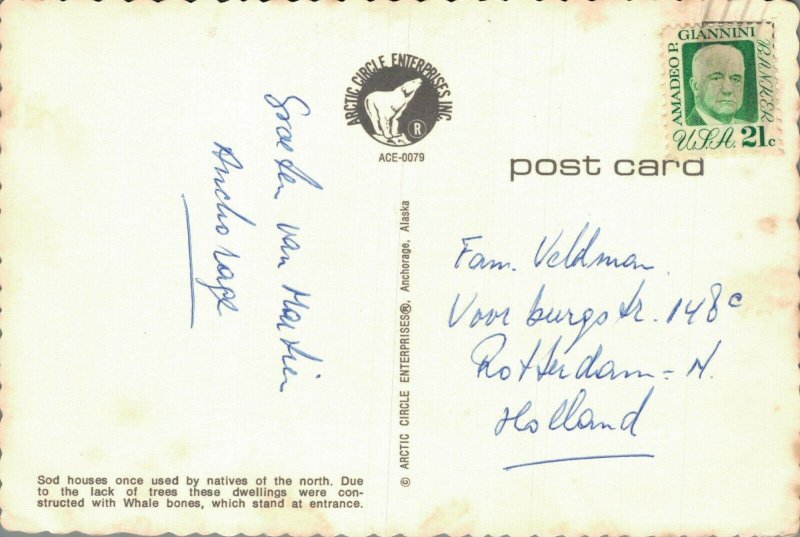 Groeten van Martin
Anchorage
ARCTIC CIRCLE ENTERPRISES INC.
R
ACE-0079
AMADEO P. GIANNINI
BANKER
U.S.A. 21c
post card
Fam. Veldman
Voorburgstr. 148c
Rotterdam-N.
Holland
© ARCTIC CIRCLE ENTERPRISES®, Anchorage, Alaska
Sod houses once used by natives of the north. Due
to the lack of trees these dwellings were con-
structed with Whale bones, which stand at entrance.